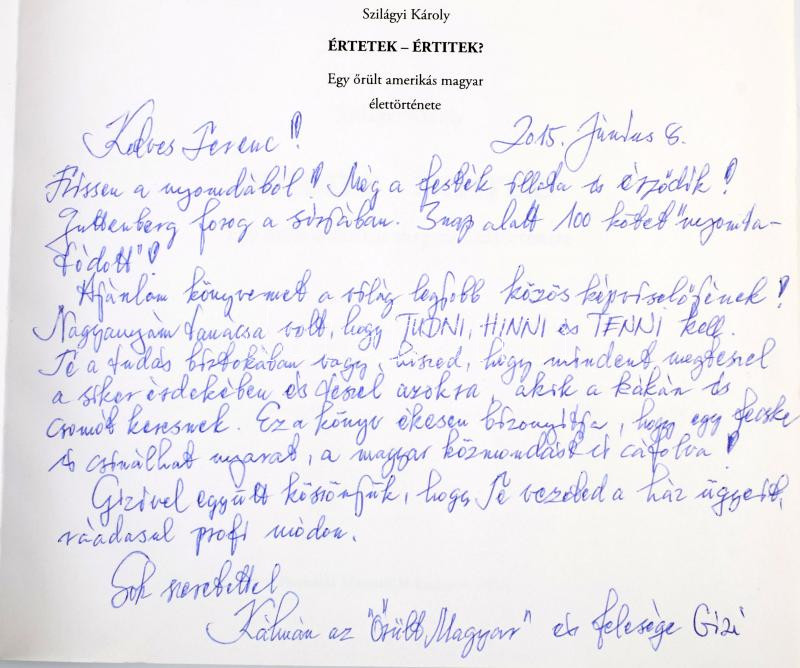 Szilágyi Károly
ÉRTETEK – ÉRTITEK?
Egy őrült amerikás magyar
élettörténete
Kedves Ferenc!
2015. Június 8.
Frissen a nyomdából! Még a festék illata is érződik!
Guttenberg forog a sírjában. 3 nap alatt 100 kötet "nyomta-
tódott"!
Ajánlom könyvemet a világ legjobb közös képviselőjének!
Nagyanyám tanácsa volt, hogy TUDNI, HINNI és TENNI kell.
Te a tudás birtokában vagy, hiszed, hogy mindent megteszel
a siker érdekében és teszel azokra, akik a kákán is
csomót keresnek. Ez a könyv ékesen bizonyítja, hogy egy fecske
is csinálhat nyarat, a magyar közmondást is cáfolva!
Gizivel együtt köszönjük, hogy Te vezeted a ház ügyeit,
ráadásul profi módon.
Sok szeretettel
Kálmán az "Őrült Magyar" és felesége Gizi